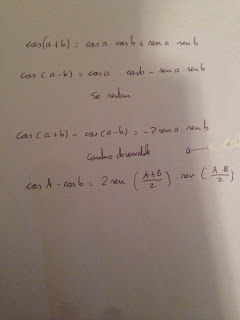 cos(a+b) = cosa · cosb + sen a · sen b
cos (a-b) = cosa · cosb - sen a · sen b
Se restan
cos(a+b) - cos(a-b) = -2 sen a · sen b
cos A - cos b = 2 sen (A+B/2) · sen (A-B/2)